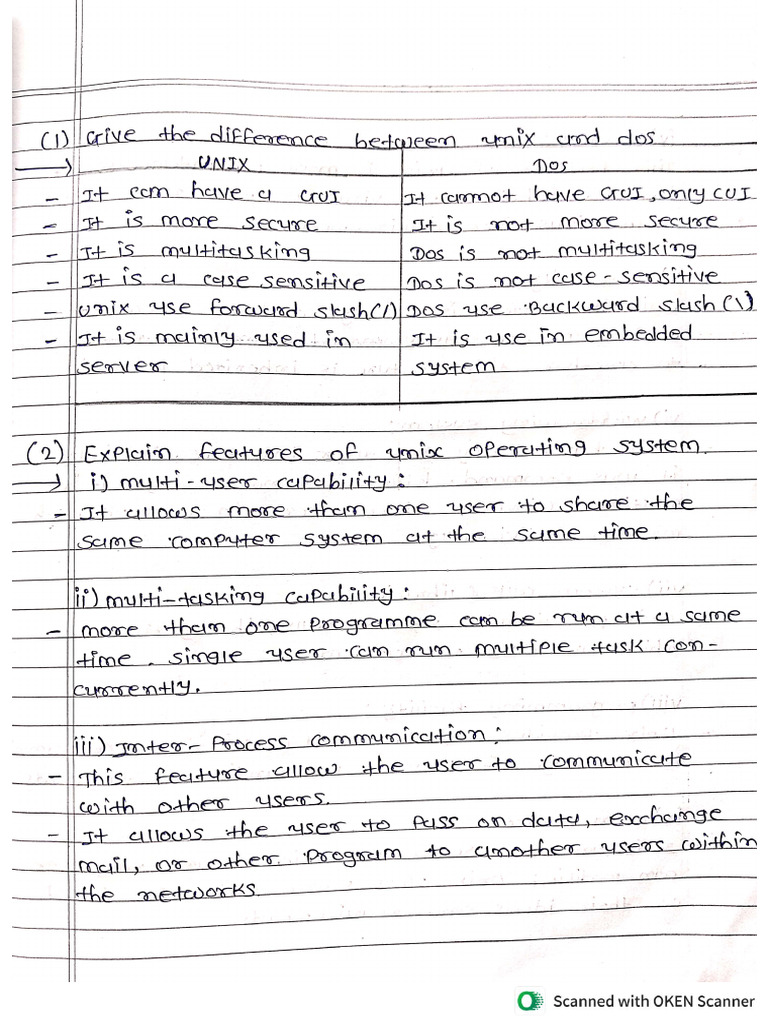 (1) Give the difference between unix and dos
→ UNIX DOS
- It can have a GUI It cannot have GUI, only CUI
- It is more secure It is not more secure
- It is multitasking Dos is not multitasking
- It is a case sensitive Dos is not case-sensitive
- Unix use forward slash(/) Dos use Backward slash(\)
- It is mainly used in It is use in embedded
server system
(2) Explain features of unix operating system.
→ i) multi-user capability:
- It allows more than one user to share the
same computer system at the same time.
ii) multi-tasking capability:
- more than one programme can be run at a same
time. single user can run multiple task con-
currently.
iii) Inter-Process communication:
- This feature allow the user to communicate
with other users.
- It allows the user to pass on data, exchange
mail, or other program to another users within
the networks
Scanned with OKEN Scanner